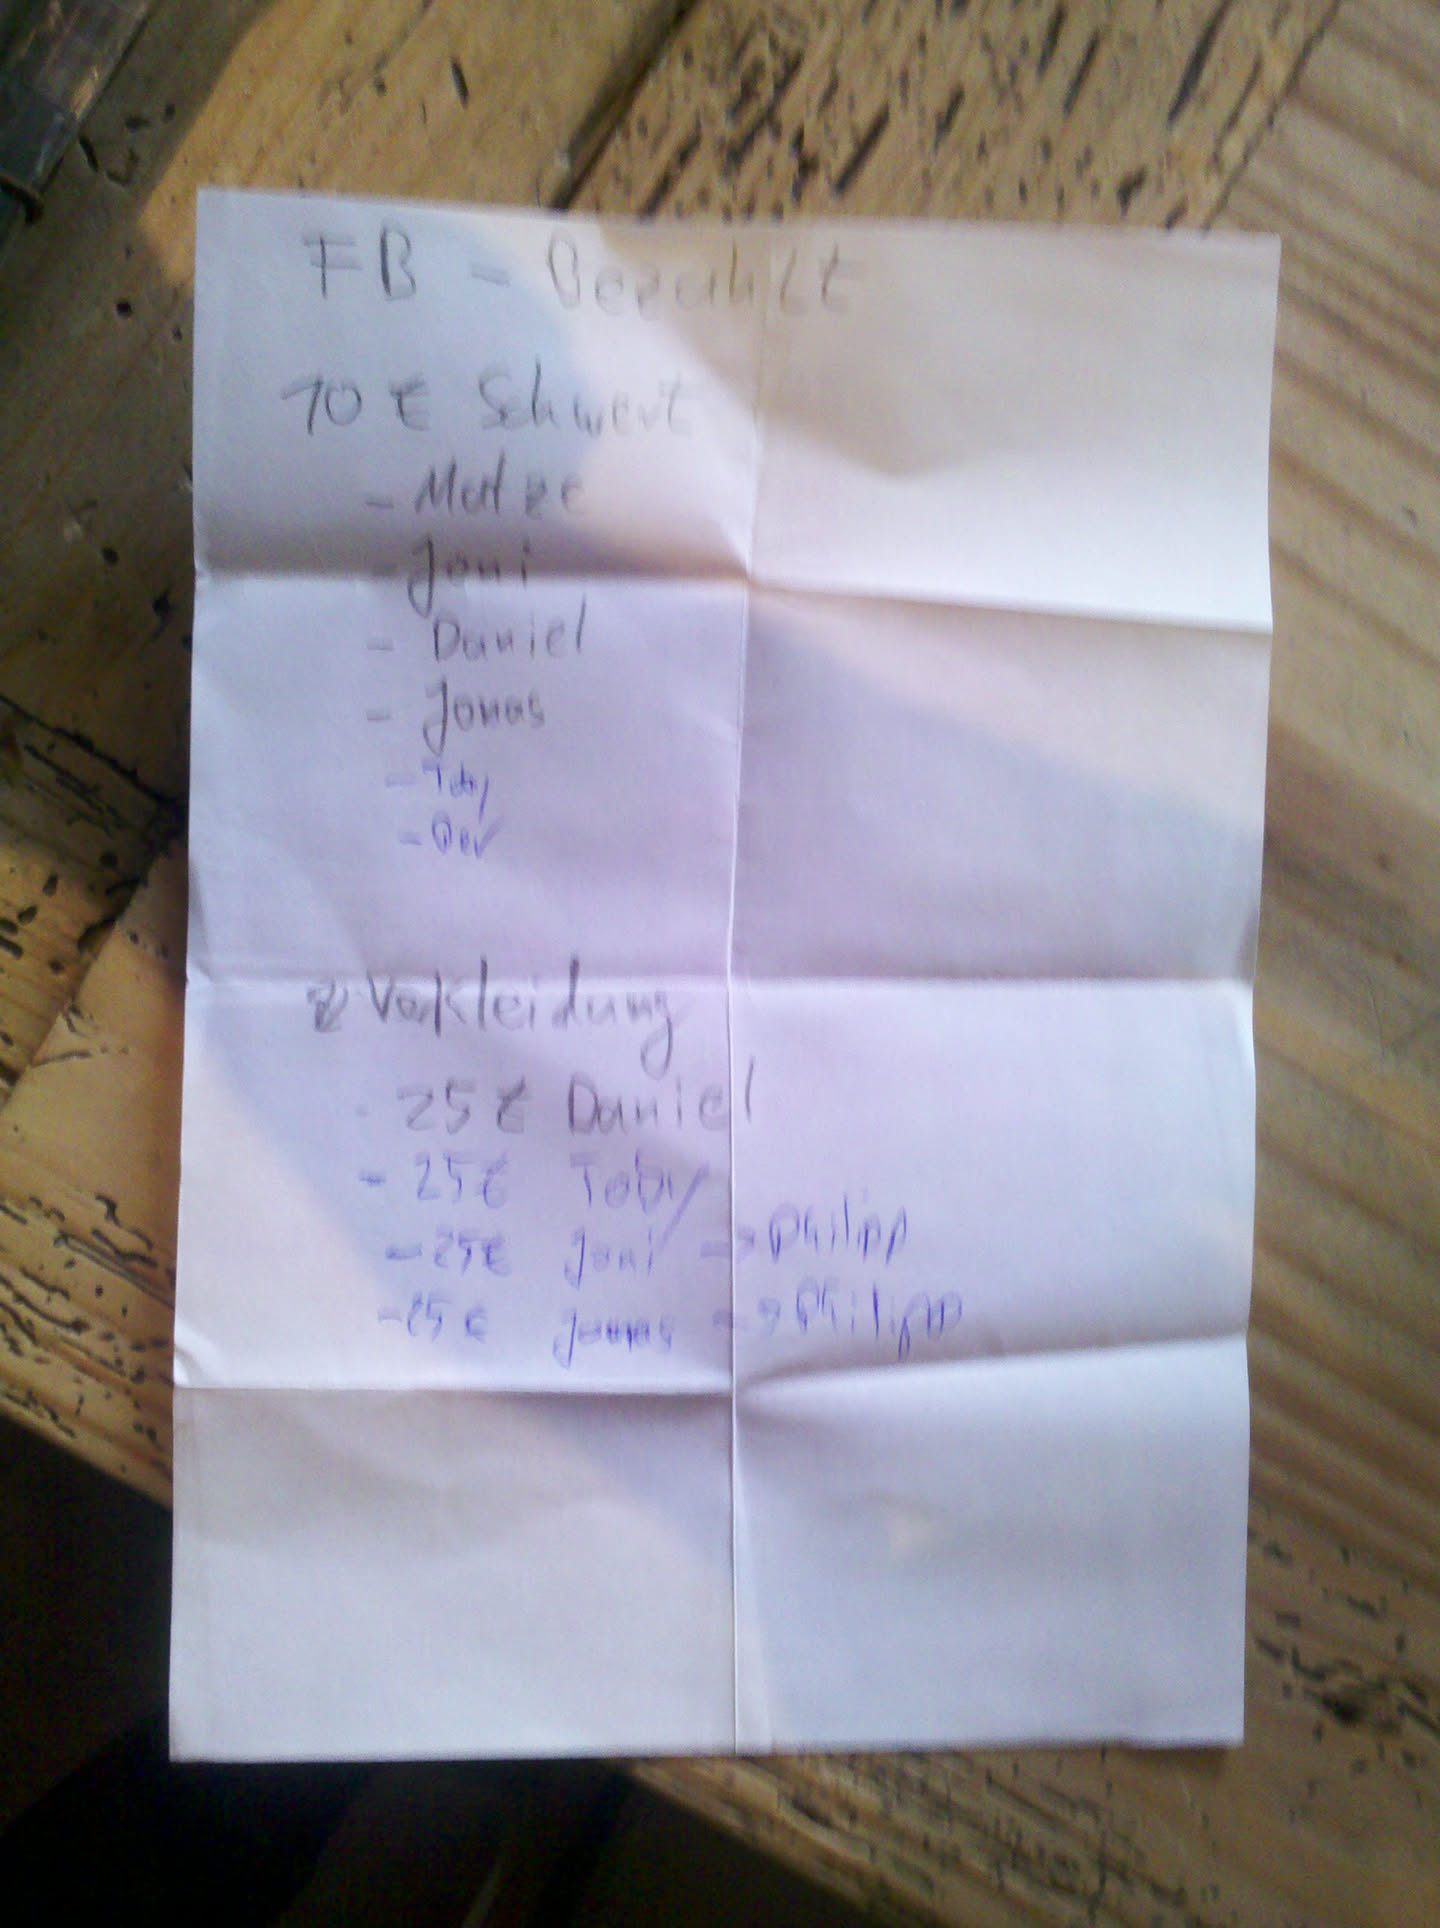 FB - Bezahlt
10 € Schwert
- Matze
- Joni
- Daniel
- Jonas
- Toby
- Dev
Verkleidung
- 25 € Daniel
- 25 € Toby
- 25 € Joni -> Philipp
- 25 € Jonas -> Philipp